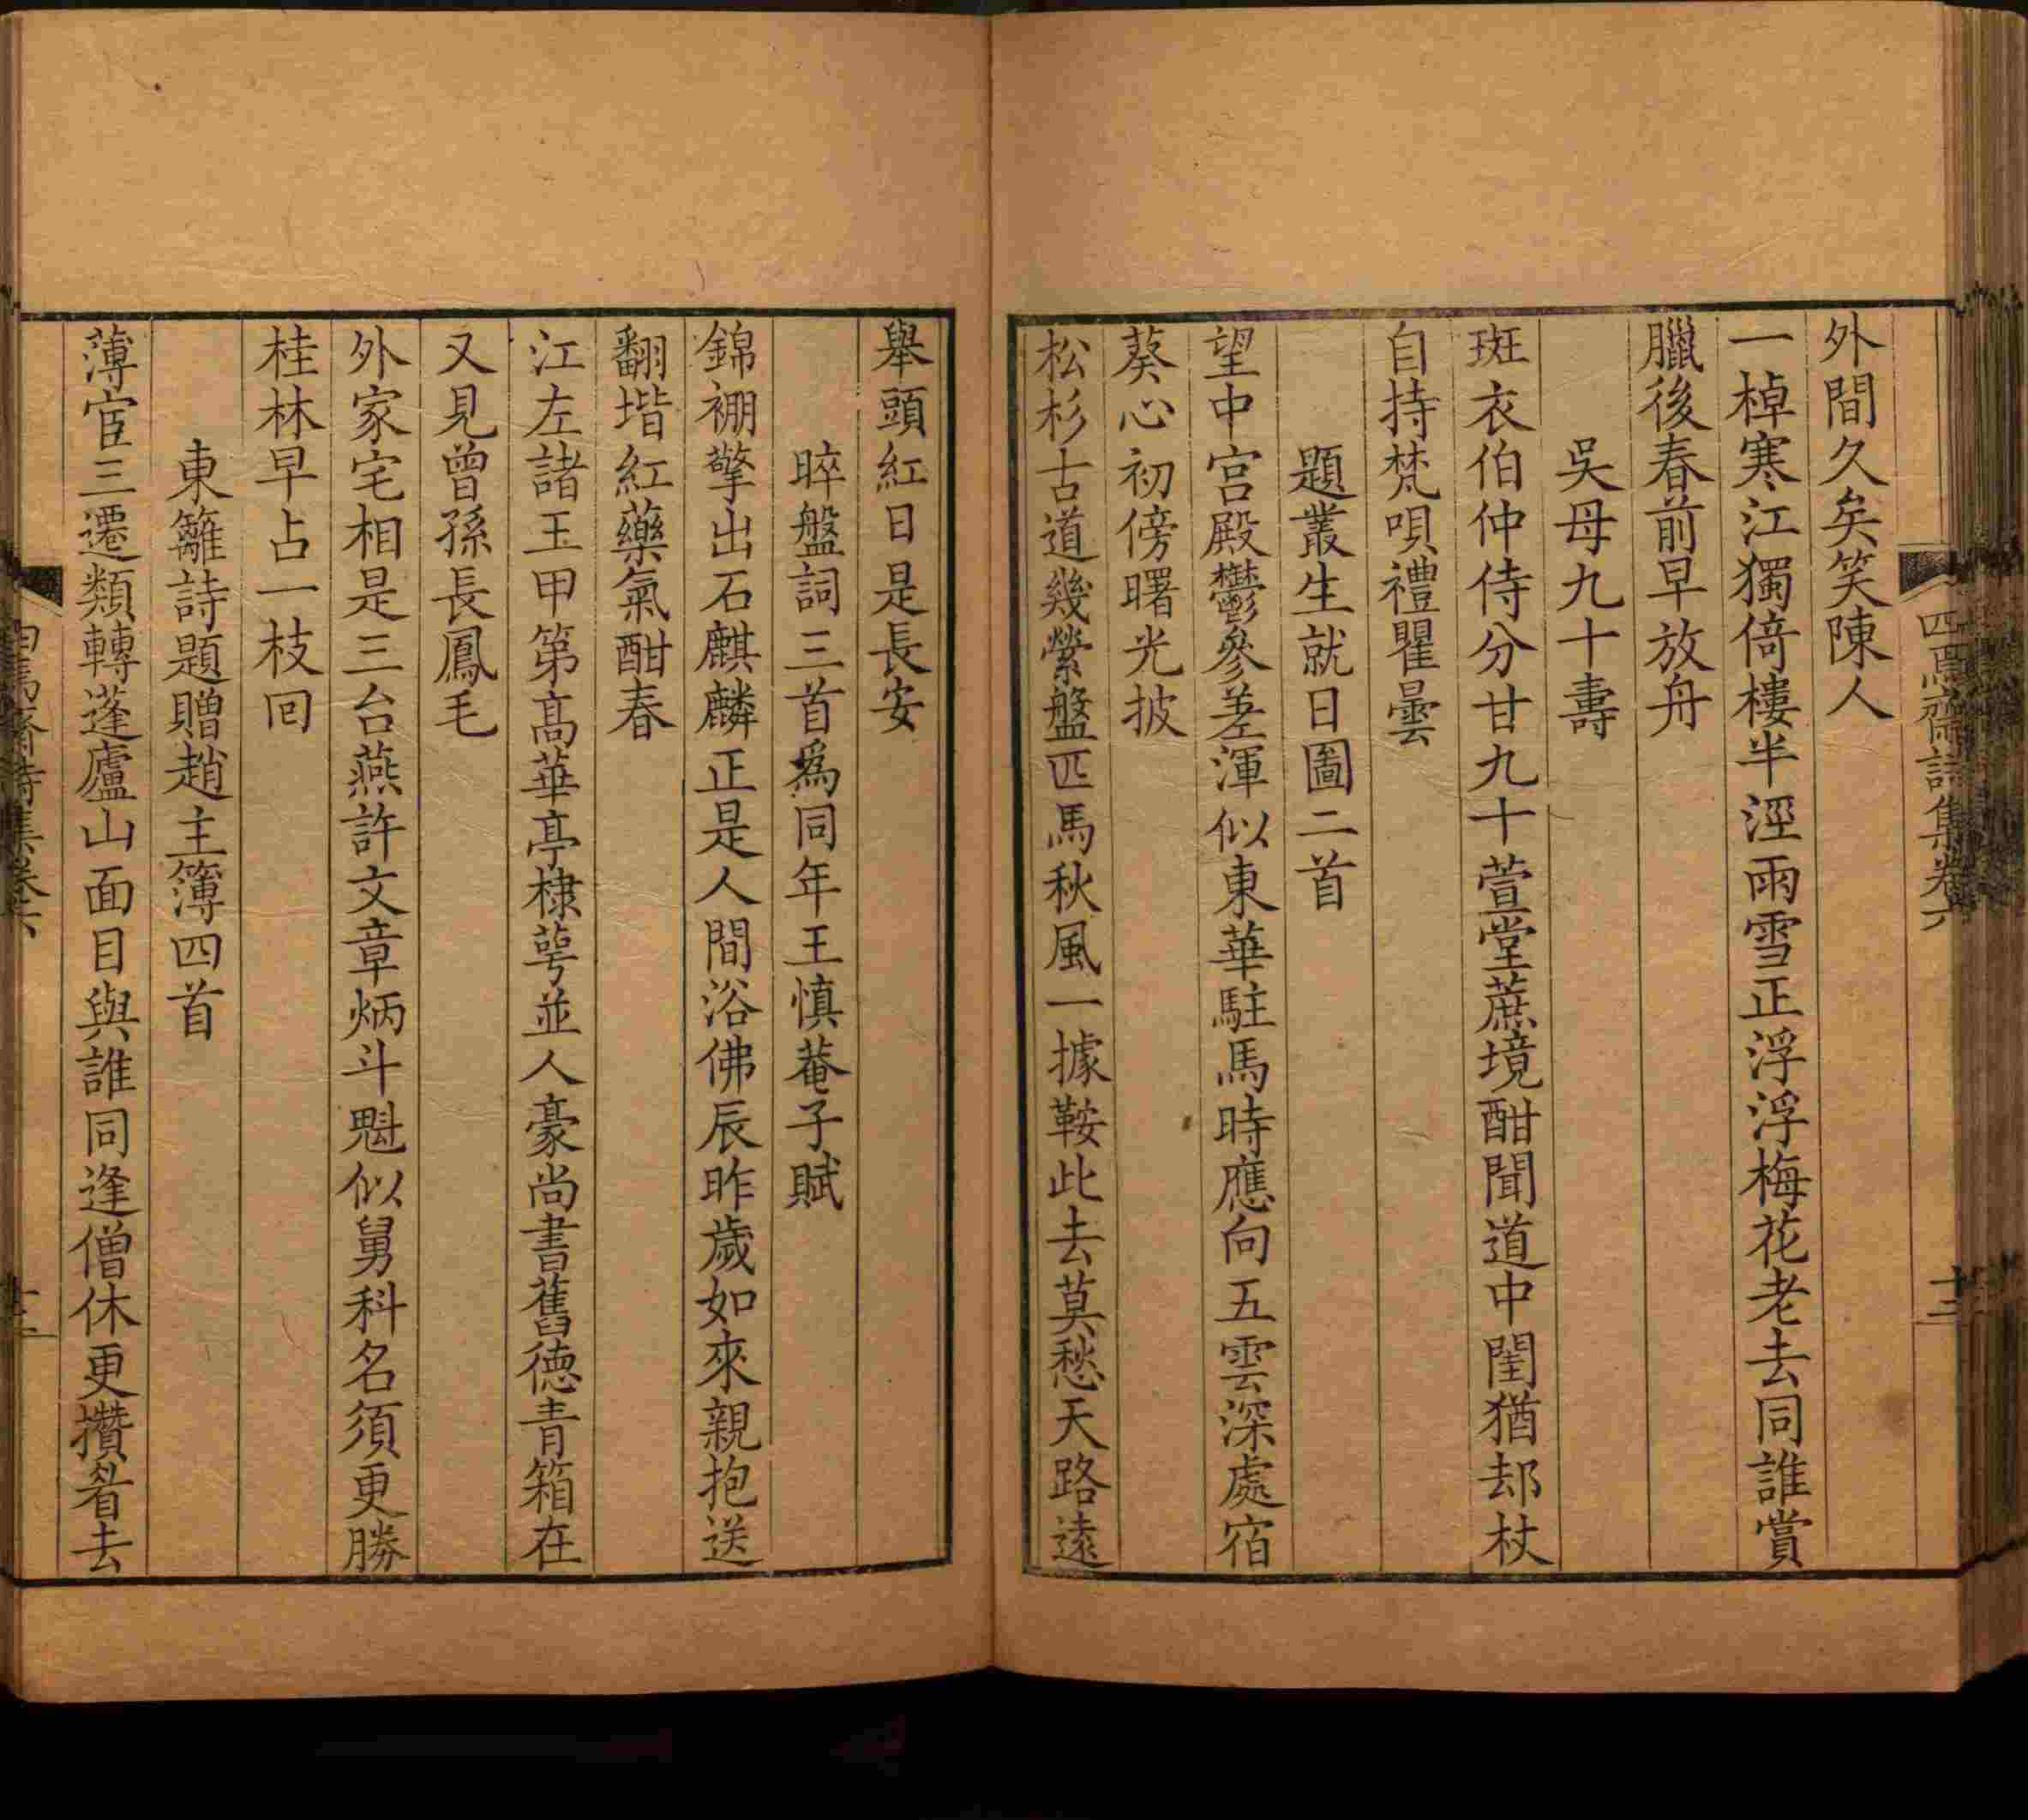 四焉齋詩集卷六
十二
外間久矣笑陳人
一棹寒江獨倚樓半溼雨雪正浮浮梅花老去同誰賞
臘後春前早放舟
吳母九十壽
斑衣伯仲侍分甘九十萱堂蔗境酣聞道中閨猶却杖
自持梵唄禮瞿曇
題叢生就日圖二首
望中宮殿鬱參差渾似東華駐馬時應向五雲深處宿
葵心初傍曙光披
松杉古道幾縈盤匹馬秋風一據鞍此去莫愁天路遠
舉頭紅日是長安
晬盤詞三首爲同年王慎菴子賦
錦棚擎出石麒麟正是人間浴佛辰昨歲如來親抱送
翻堦紅藥氣酣春
江左諸王甲第高華亭棣萼並人豪尚書舊德青箱在
又見曾孫長鳳毛
外家宅相是三台燕許文章炳斗魁似舅科名須更勝
桂林早占一枝回
東籬詩題贈趙主簿四首
薄宦三遷類轉蓬廬山面目與誰同逢僧休更攢眉去
四焉齋詩集卷六